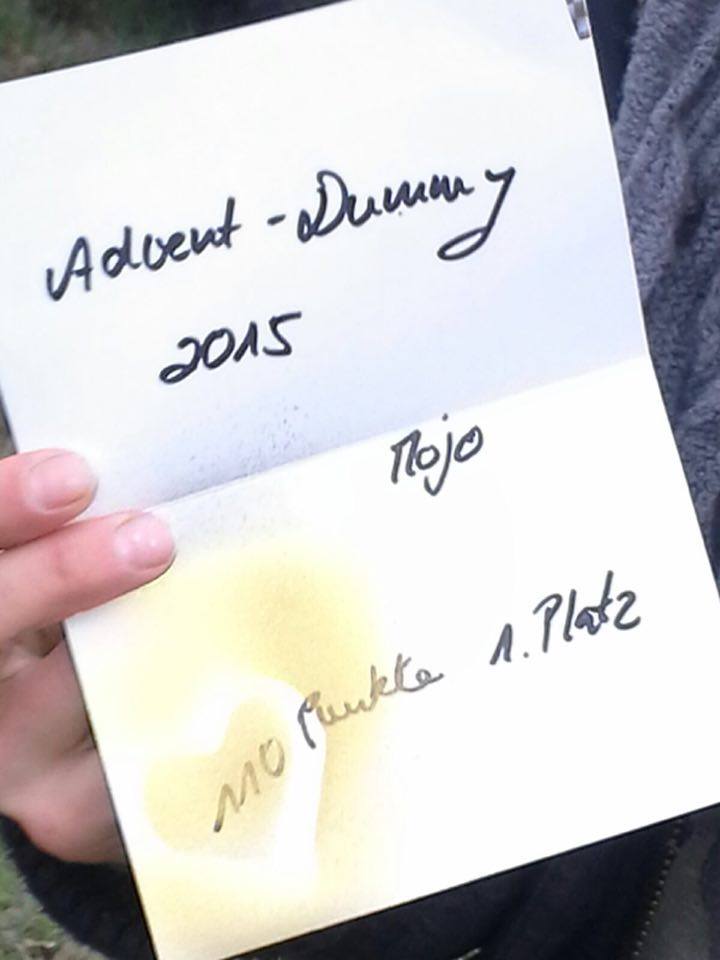 Advent-Dummy
2015
Mojo
110 Punkte 1. Platz